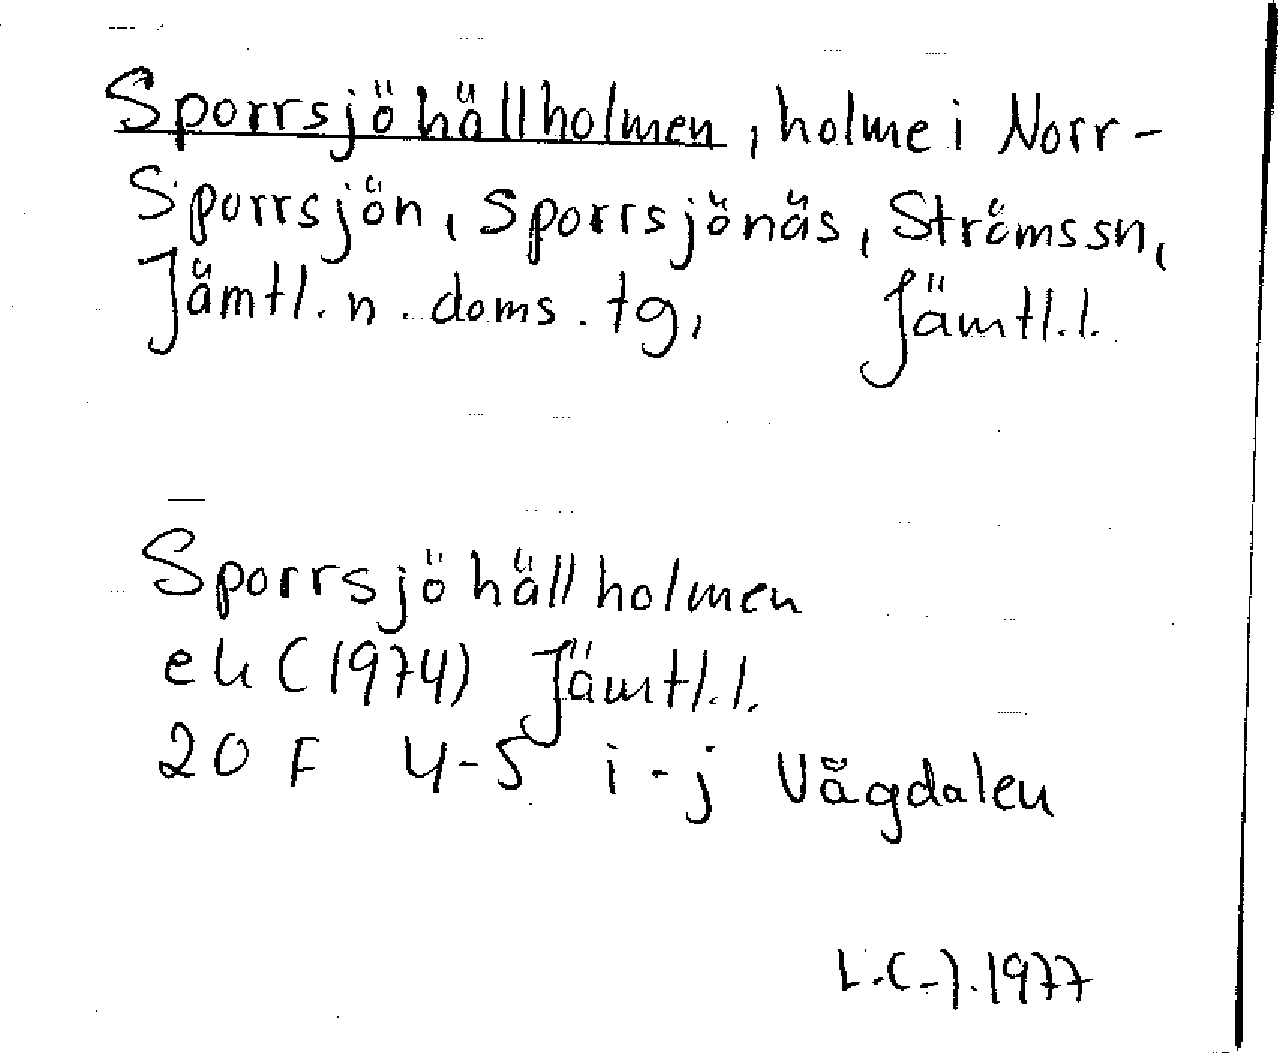 Sporrsjöhällholmen, holme i Norr-
Sporrsjön, Sporrsjönäs, Strömssn,
Jämtl. n. doms. tg, Jämtl. l.
Sporrsjöhällholmen
ek (1974) Jämtl. l.
20 F 4-5 i-j Vågdalen
L.C-).1977